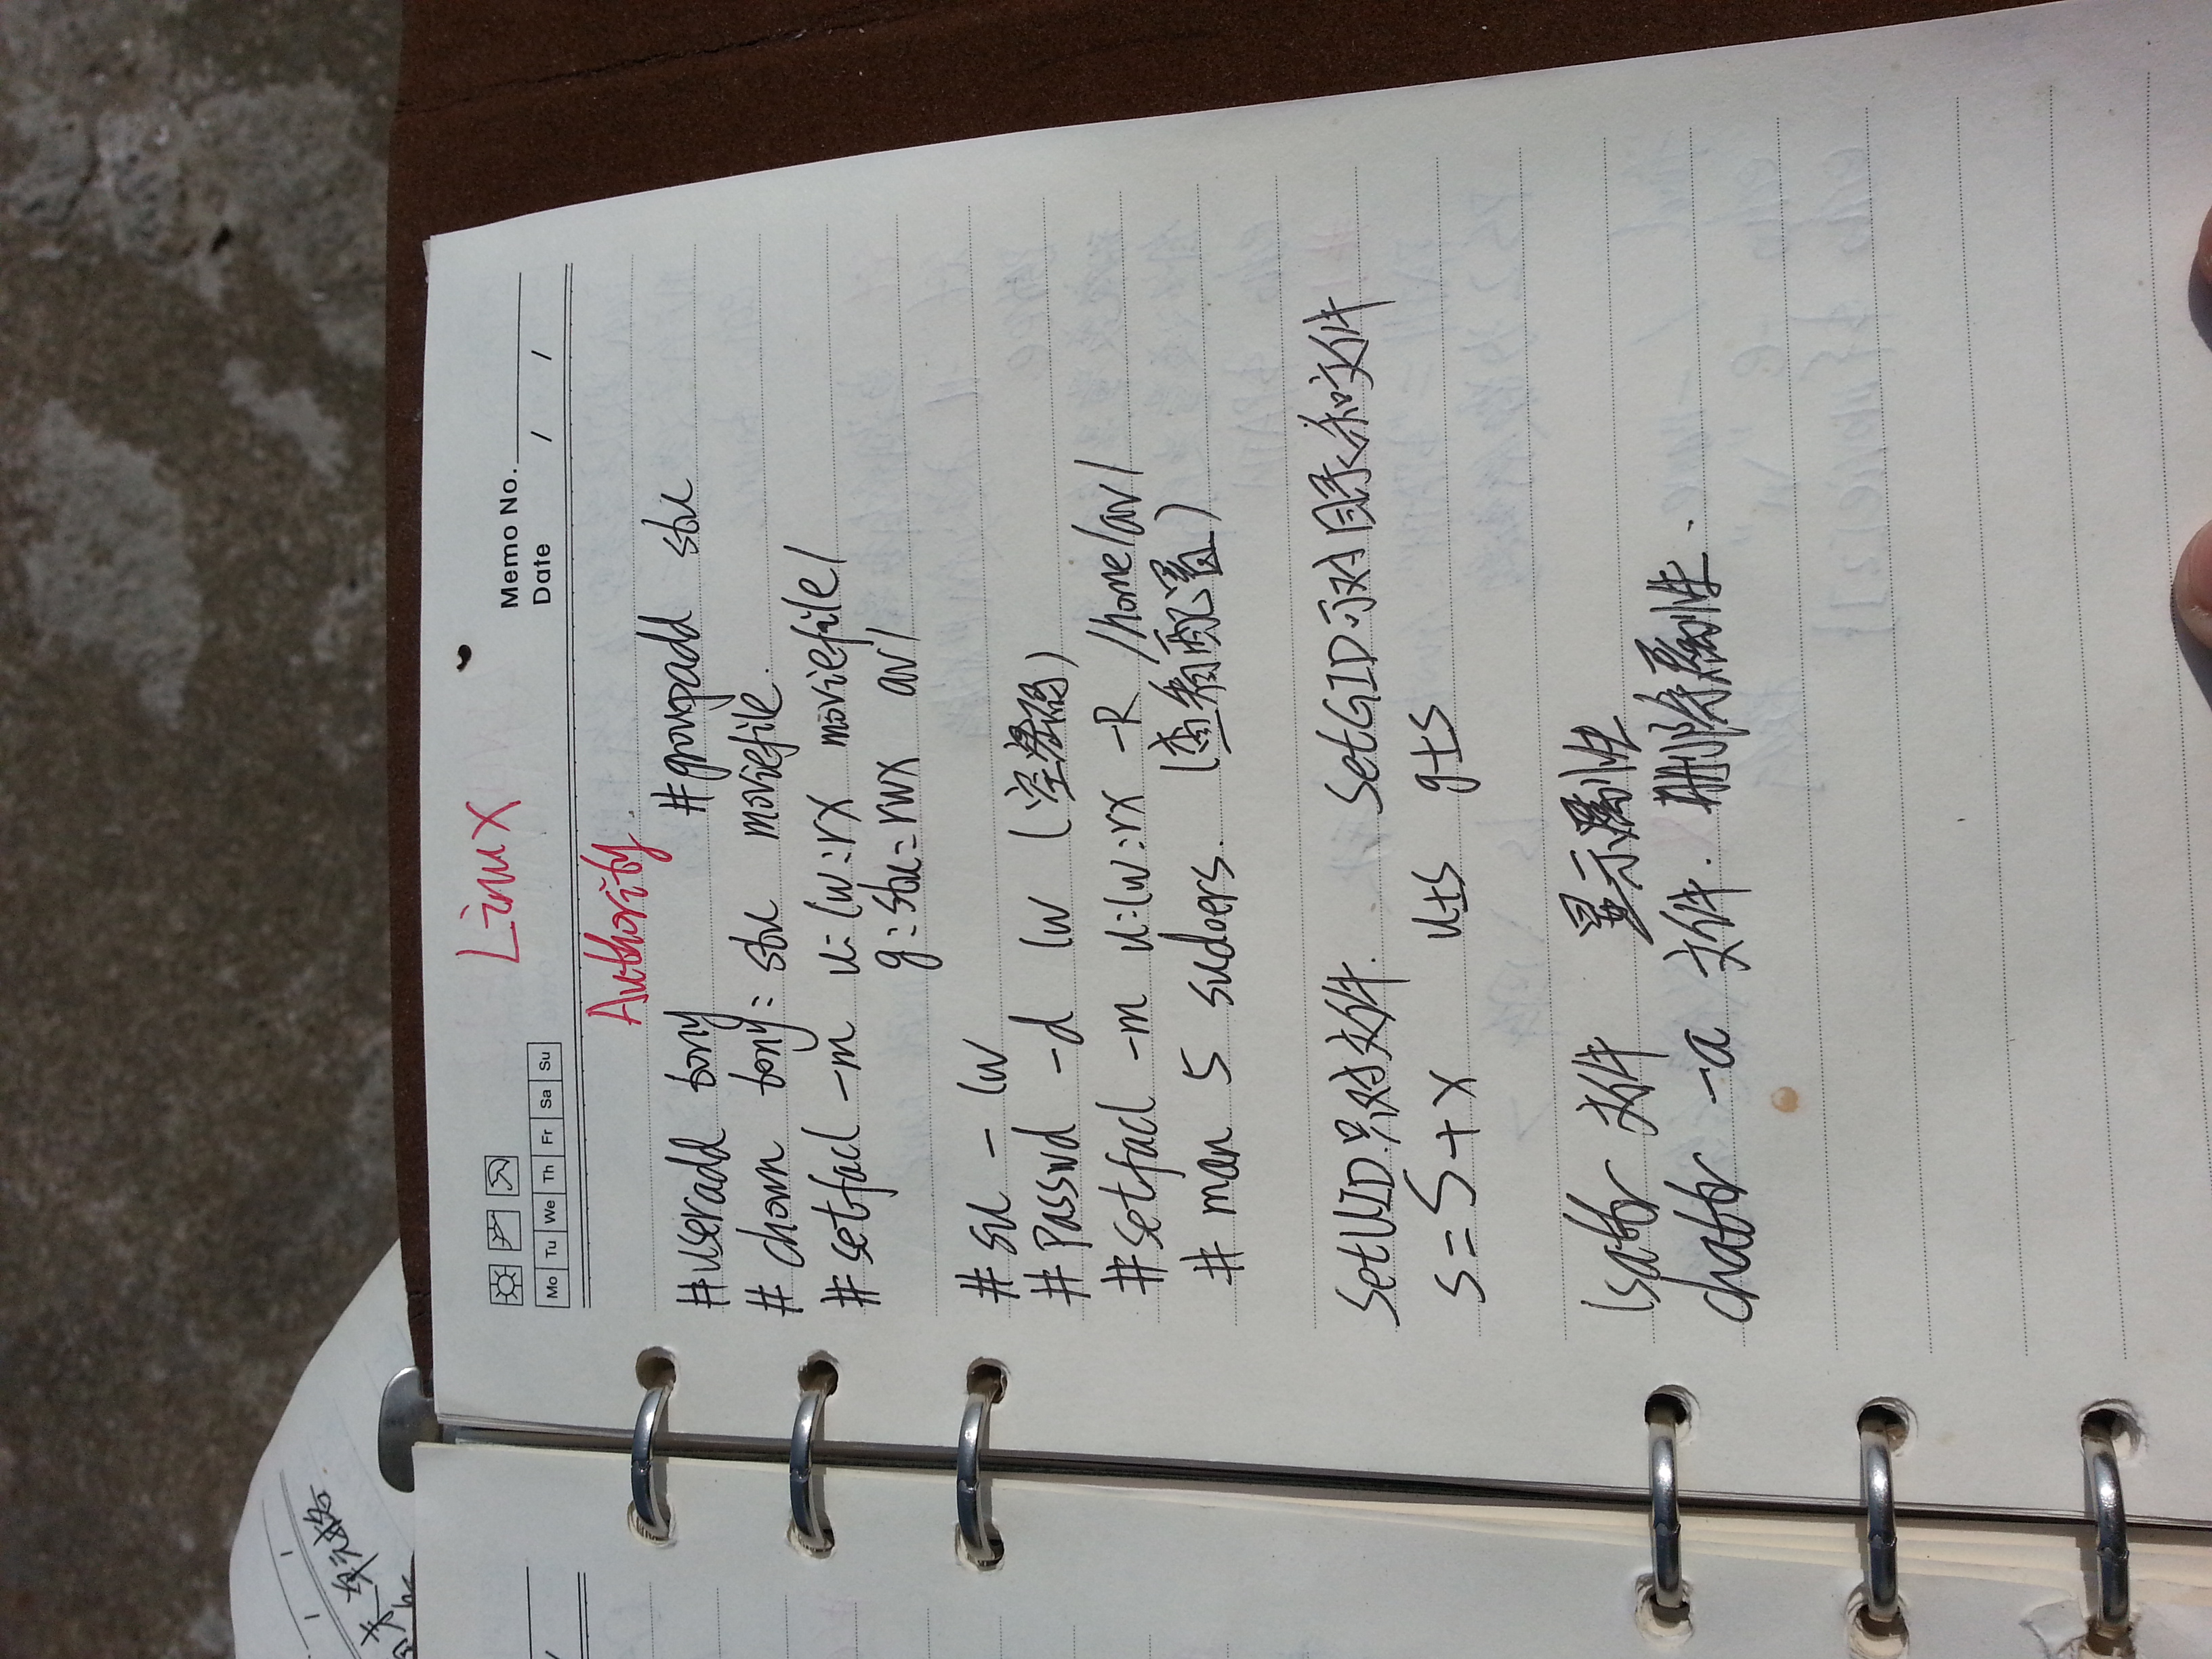 末单元格
Linux
Memo No.
Mo Tu We Th Fr Sa Su
Date / /
Authority.
#useradd tony #groupadd stu
# chown tony: stu moviefile.
#setfacl -m u:lw:rx moviefile/
g:stu:rwx av/
# su - lw
# passwd -d lw (空密码)
#setfacl -m u:lw:rx -R /home/av/
# man 5 sudoers. (查看配置)
SetUID只对文件. SetGID可对目录和文件
s=S+x u±s g±s
lsattr 文件 显示属性
chattr -a 文件. 删除属性.